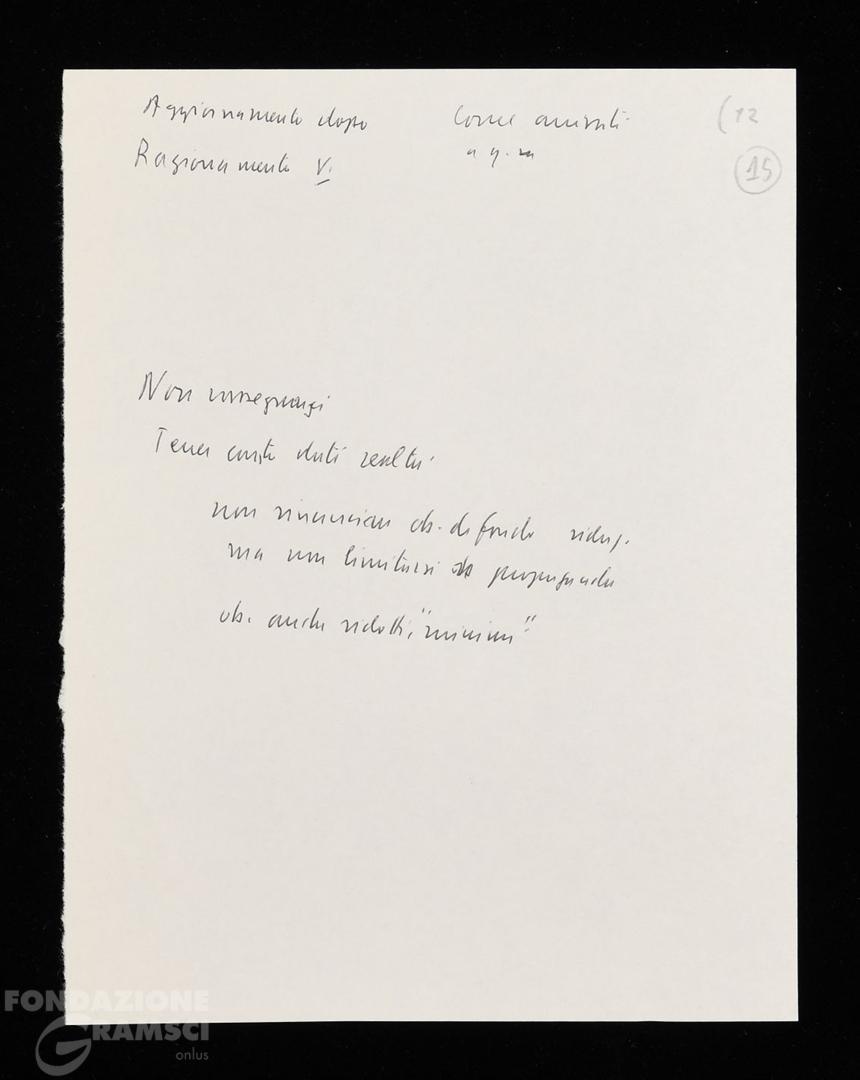 Aggiornamento dopo
Ragionamento V.
Come
(12
15
Non rassegnarsi
Tener conto dati realtà
non rinunciare ob. di fondo
ma non limitarsi propaganda
ob. anche ridotti, "minimi"
FONDAZIONE
GRAMSCI
onlus